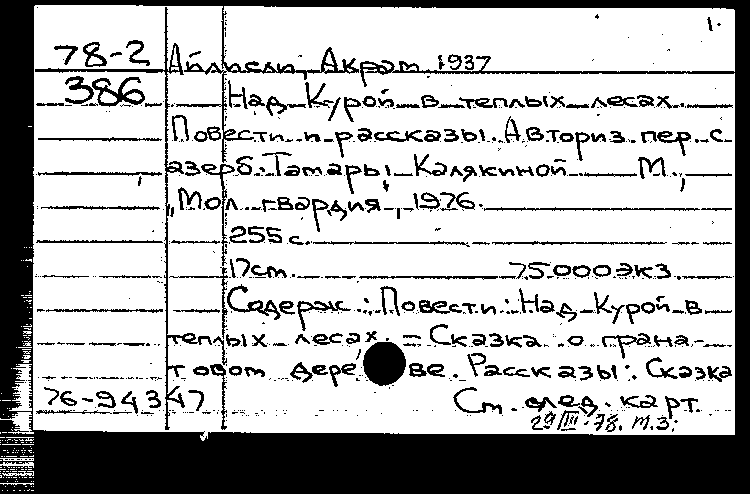 1.
78-2 Айлисли, Акрам 1937
386 Над Курой в теплых лесах.
Повести и рассказы. Авториз. пер. с
азерб. Тамары Калякиной М.,
"Мол. гвардия", 1976.
255 с.
17 см. 75 000 экз.
Содерж.: Повести: Над Курой в
теплых лесах. = Сказка о грана-
товом дереве. Рассказы: Сказка
76-94347 См. след. карт.
29/III-78. т.з.